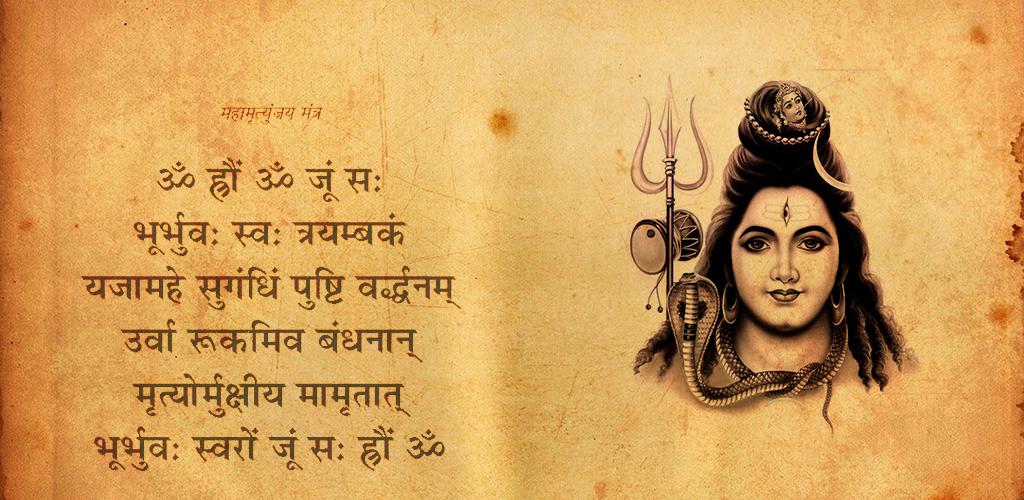 महामृत्युंजय मंत्र
ॐ ह्रौं ॐ जूं सः
भूर्भुवः स्वः त्रयम्बकं
यजामहे सुगंधिं पुष्टि वर्द्धनम्
उर्वा रूकमिव बंधनान्
मृत्योर्मुक्षीय मामृतात्
भूर्भुवः स्वरों जूं सः ह्रौं ॐ